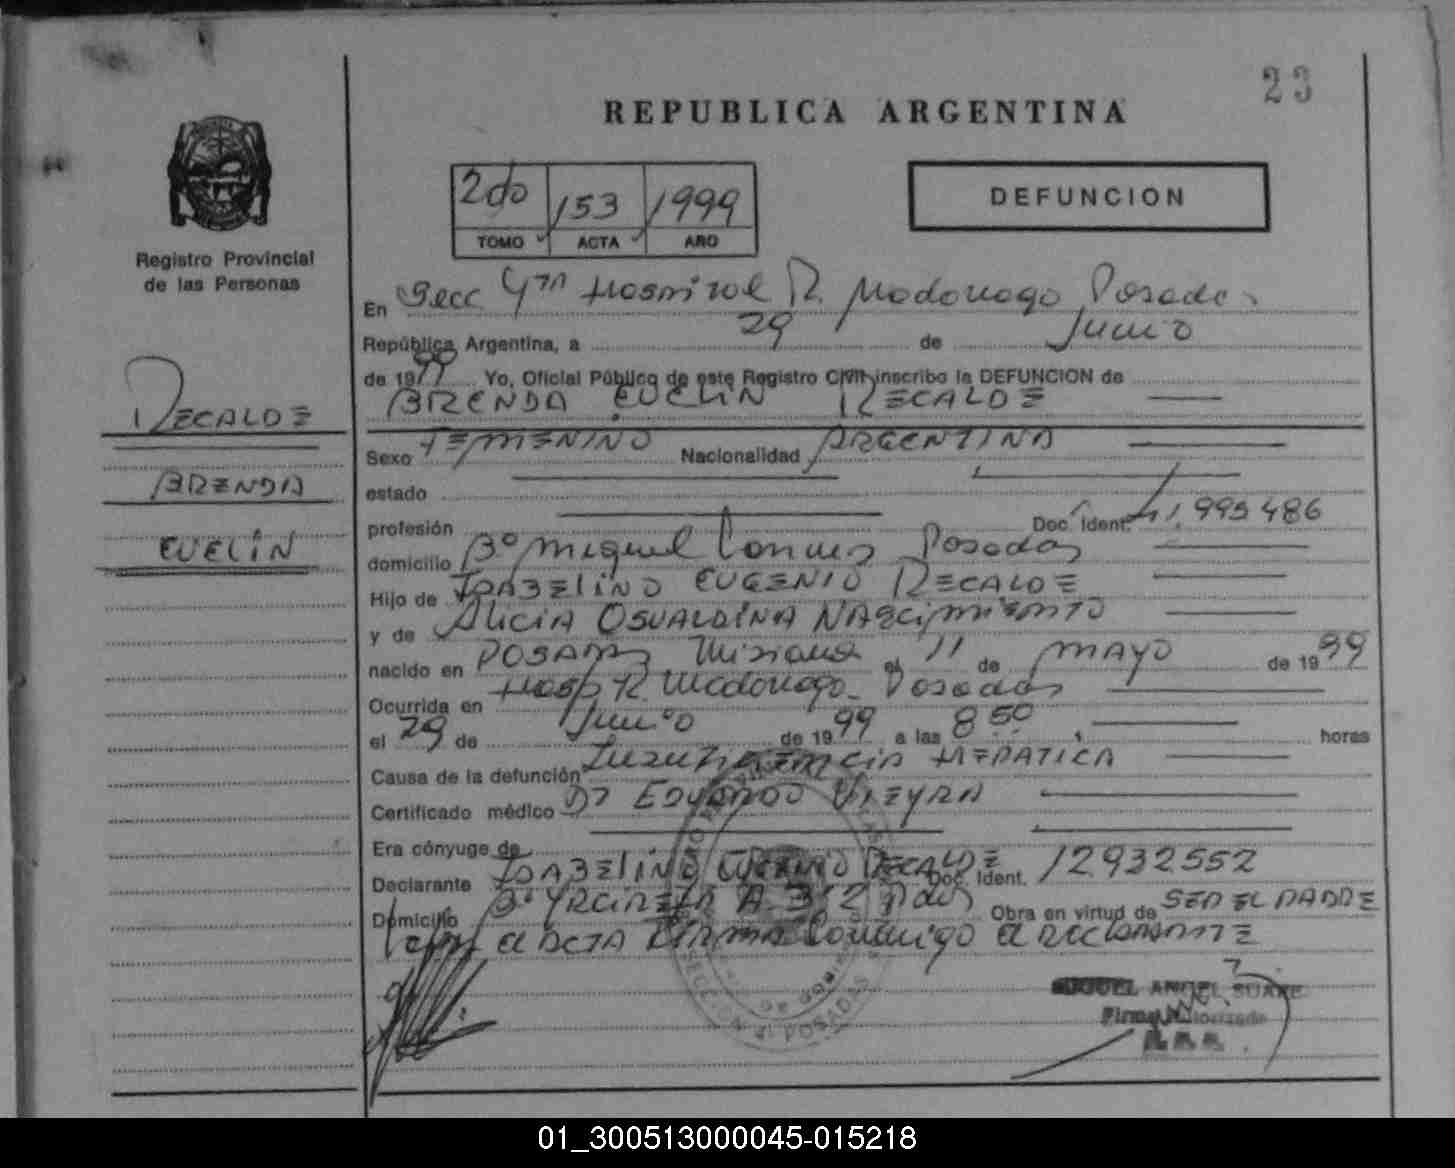 23
REPUBLICA ARGENTINA
2do 153 1999
TOMO ACTA AÑO
DEFUNCION
Registro Provincial
de las Personas
RECALDE
BRENDA
EVELIN
En Secc 4ta Hospital R. Madariaga Posadas
República Argentina, a 29 de Junio
de 1999 Yo, Oficial Público de este Registro Civil inscribo la DEFUNCION de
BRENDA EVELIN RECALDE
Sexo FEMENINO Nacionalidad ARGENTINA
estado
profesión Doc. Ident. 41.995486
domicilio B° Miguel Posadas
Hijo de EUGENIO RECALDE
y de ALICIA OSVALDINA NASCIMIENTO
nacido en POSADAS Misiones el 11 de MAYO de 1999
Ocurrida en Hosp R. Madariaga - Posadas
el 29 de Junio de 1999 a las 8 50 horas
Causa de la defunción Insuficiencia HEPATICA
Certificado médico Dr EDUARDO VIEYRA
Era cónyuge de
Declarante EUGENIO RECALDE Doc. Ident. 12932552
Domicilio B° Obra en virtud de SER EL PADRE
el ACTA FIRMA Conmigo el DECLARANTE
SECCION 4 POSADAS
MIGUEL ANGEL
Firma Autorizada
01_300513000045-015218